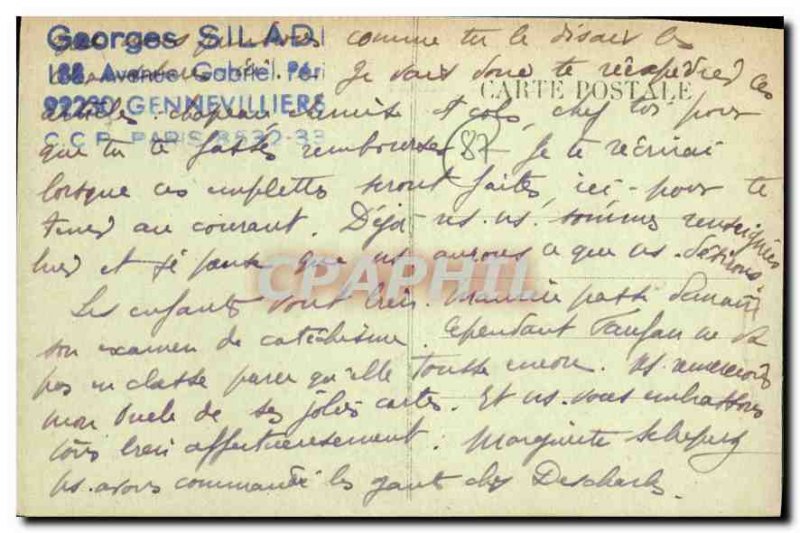 Georges SILADI
188, Avenue Gabriel Péri
92230 GENNEVILLIERS
C.C.P. PARIS
CARTE POSTALE
comme tu le disais les
Je vais donc te ces
articles: chapeau, chemise et cols, chez toi, pour
que tu te fasses rembourser (87) Je te récrirai
lorsque ces emplettes seront faites, ici - pour te
tenir au courant. Déjà ns. ns. sommes renseignés
hier et je pense que ns aurons ce que ns. désirons
Les enfants vont bien. passe demain
son examen de catéchisme. Cependant Fanfan ne va
pas en classe parce qu'elle tousse encore. Ns. remercions
mon Oncle de ses jolies cartes. Et ns. vous embrassons
tous bien affectueusement. Marguerite
Ns. avons commandé les gants chez
CPAPHIL